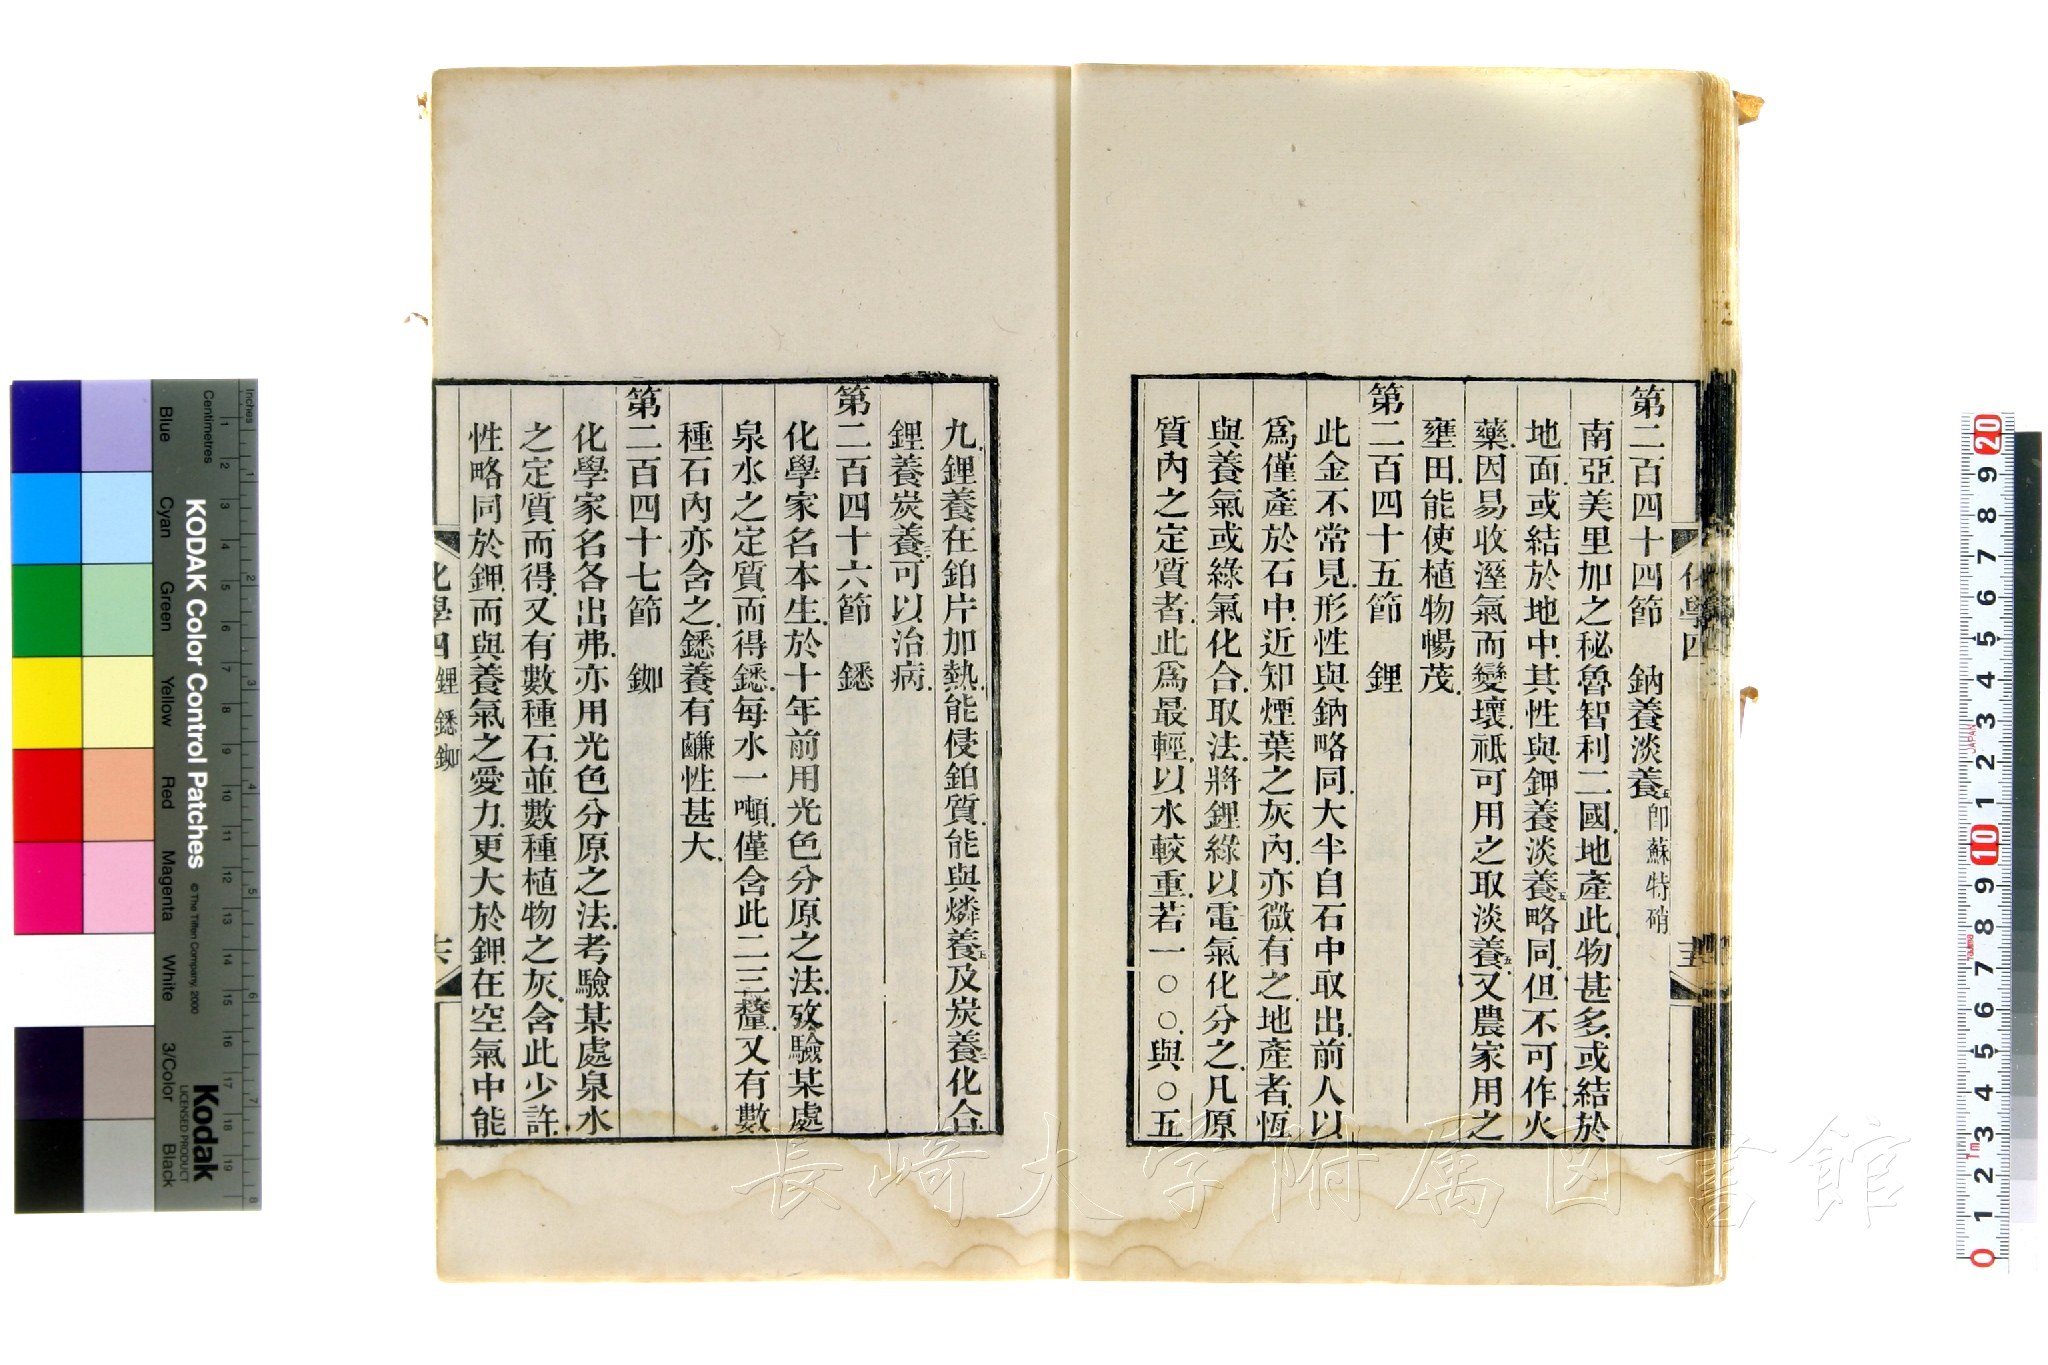 第二百四十四節　鈉養淡養五卽蘇特硝
南亞美里加之秘魯智利二國.地產此物甚多.或結於
地面.或結於地中.其性與鉀養淡養五略同.但不可作火
藥.因易收溼氣而變壞.祗可用之取淡養五.又農家用之
壅田.能使植物暢茂.
第二百四十五節　鋰
此金不常見.形性與鈉略同.大半自石中取出.前人以
爲僅產於石中.近知煙葉之灰內.亦微有之.地產者.恆
與養氣或綠氣化合.取法.將鋰綠以電氣化分之.凡原
質內之定質者.此爲最輕.以水較重.若一〇〇.與〇五
化學四
九.鋰養在鉑片加熱.能侵鉑質.能與燐養五及炭養二化合
鋰養炭養二.可以治病.
第二百四十六節　鏭
化學家名本生.於十年前用光色分原之法.攷驗某處
泉水之定質而得鏭.每水一噸.僅含此二三釐.又有數
種石內亦含之.鏭養有鹻性甚大.
第二百四十七節　銣
化學家名各出弗.亦用光色分原之法.考驗某處泉水
之定質而得.又有數種石.並數種植物之灰.含此少許.
性略同於鉀.而與養氣之愛力.更大於鉀.在空氣中能
化學四　鋰　鏭　銣
KODAK Color Control Patches
©The Tiffen Company, 2000
Kodak
LICENSED PRODUCT
Inches
Centimetres
Blue
Cyan
Green
Yellow
Red
Magenta
White
3/Color
Black
長崎大学附属図書館